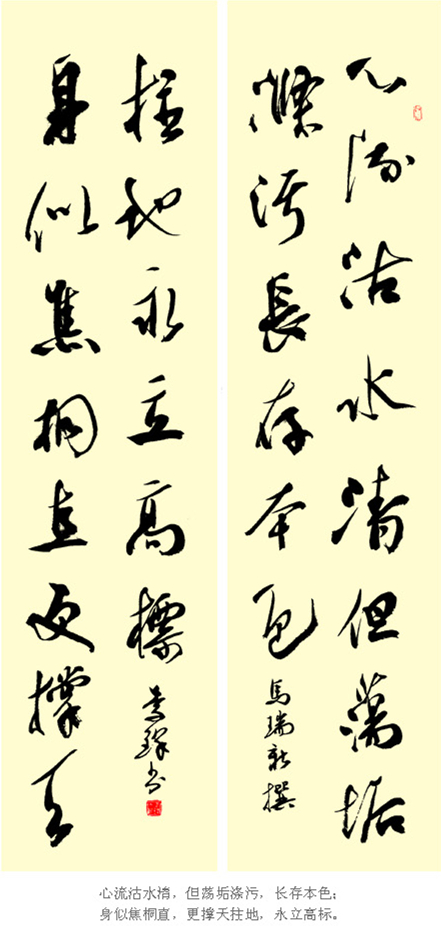 心流沽水清但蕩垢
滌污長存本色
馬瑞新撰
身似焦桐直更撐天
拄地永立高標
李鐸书
心流沽水清，但荡垢涤污，长存本色；
身似焦桐直，更撑天拄地，永立高标。